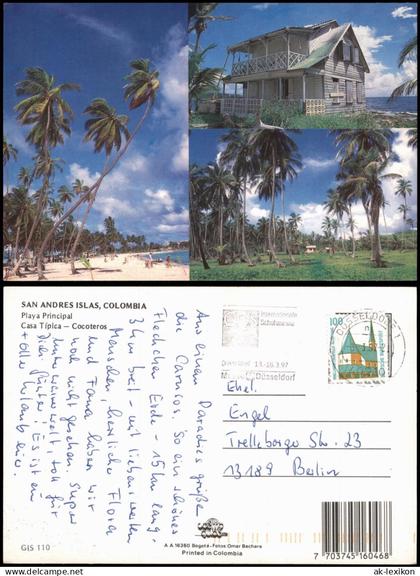 SAN ANDRES ISLAS, COLOMBIA
Playa Principal
Casa Típica – Cocoteros
Aus einem Paradies grüße
die Caraiss. So ein schönes
Fleckchen Erde - 15 km lang -
3 km breit - mit lieben netten
Menschen, herrlicher Flora
und Fauna haben wir
noch nicht gesehen. Super
Unterwasserwelt, toll für
Dich Günter! Es ist ein
toller Urlaub hier.
Internationale
Schuhmesse
Düsseldorf 13.-16.3.97
Messe Düsseldorf
DÜSSELDORF 1
100
Ehel.
Engel
Trelleborger Str. 23
13189 Berlin
GIS 110
A.A. 16360 Bogotá - Fotos Omar Bechara
Printed in Colombia
7 703745 160468
© ak-lexikon
ak-lexikon.de